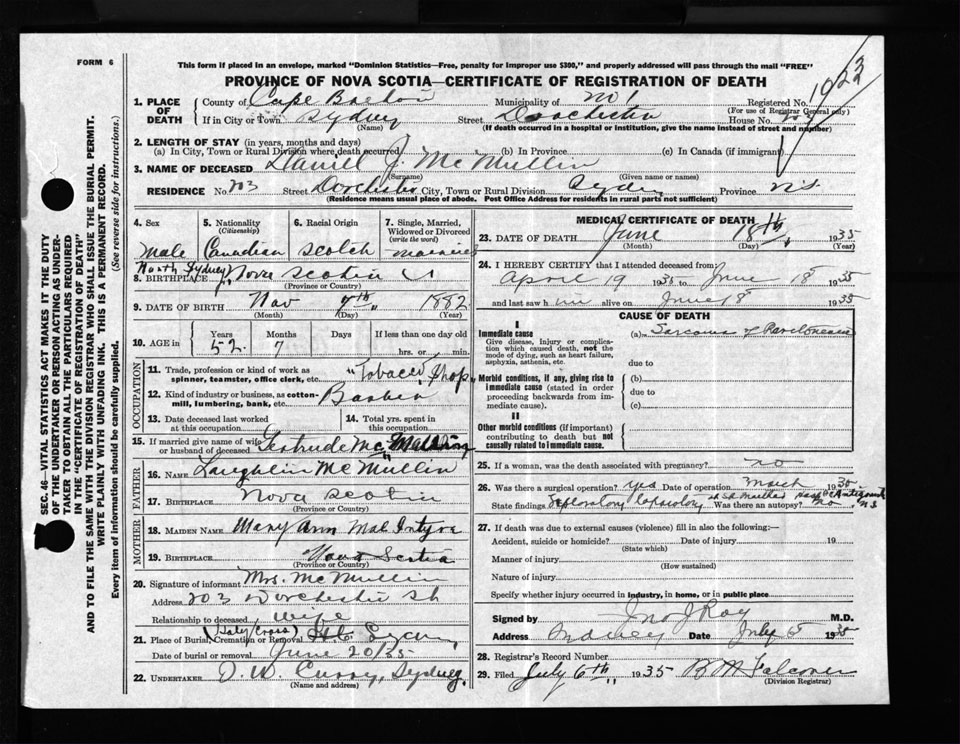 FORM 6
This form if placed in an envelope, marked "Dominion Statistics—Free, penalty for improper use $300," and properly addressed will pass through the mail "FREE"
PROVINCE OF NOVA SCOTIA—CERTIFICATE OF REGISTRATION OF DEATH
1923
1. PLACE OF DEATH County of Cape Breton Municipality of No 1 Registered No.
(For use of Registrar General only)
If in City or Town Sydney Street Dorchester House No.
(Name) (If death occurred in a hospital or institution, give the name instead of street and number)
2. LENGTH OF STAY (in years, months and days)
(a) In City, Town or Rural Division where death occurred (b) In Province (c) In Canada (if immigrant)
3. NAME OF DECEASED Daniel J. McMullin
(Surname) (Given name or names)
RESIDENCE No. 203 Street Dorchester City, Town or Rural Division Sydney Province N.S.
(Residence means usual place of abode. Post Office Address for residents in rural parts not sufficient)
4. Sex 5. Nationality (Citizenship) 6. Racial Origin 7. Single, Married, Widowed or Divorced (write the word)
Male Canadian Scotch Married
8. BIRTHPLACE North Sydney, Nova Scotia
(Province or Country)
9. DATE OF BIRTH Nov 7th 1882
(Month) (Day) (Year)
10. AGE in Years Months Days If less than one day old
52 7 hrs. or min.
OCCUPATION
11. Trade, profession or kind of work as spinner, teamster, office clerk, etc. "Tobacco Shop"
12. Kind of industry or business, as cotton-mill, lumbering, bank, etc. Barber
13. Date deceased last worked at this occupation 14. Total yrs. spent in this occupation
15. If married give name of wife or husband of deceased Gertrude McMullin
FATHER
16. Name Laughlin McMullin
17. Birthplace Nova Scotia
(Province or Country)
MOTHER
18. Maiden Name Mary Ann MacIntyre
19. Birthplace Nova Scotia
(Province or Country)
20. Signature of informant Mrs. McMullin
Address 203 Dorchester St
Relationship to deceased wife
21. Place of Burial, Cremation or Removal (Holy Cross) Sydney
Date of burial or removal June 20/35
22. UNDERTAKER D. W. Curry, Sydney
(Name and address)
MEDICAL CERTIFICATE OF DEATH
23. DATE OF DEATH June 18th, 1935
(Month) (Day) (Year)
24. I HEREBY CERTIFY that I attended deceased from:
April 19 1935 to June 18 1935
and last saw him alive on June 18 1935
CAUSE OF DEATH
I
Immediate cause (a) Sarcoma of
Give disease, injury or complication which caused death, not the mode of dying, such as heart failure, asphyxia, asthenia, etc.
due to
Morbid conditions, if any, giving rise to immediate cause (stated in order proceeding backwards from immediate cause). (b)
due to
(c)
II
Other morbid conditions (if important) contributing to death but not causally related to immediate cause.
25. If a woman, was the death associated with pregnancy? no
26. Was there a surgical operation? yes Date of operation March 1935
State findings Exploratory at St Marthas Hosp Antigonish N.S. Was there an autopsy? no
27. If death was due to external causes (violence) fill in also the following:—
Accident, suicide or homicide? Date of injury 19
(State which)
Manner of injury
(How sustained)
Nature of injury
Specify whether injury occurred in industry, in home, or in public place
Signed by Jno J Roy M.D.
Address Sydney Date July 5 1935
28. Registrar's Record Number
29. Filed July 6th, 1935 Falconer
(Division Registrar)
SEC. 46—VITAL STATISTICS ACT MAKES IT THE DUTY
OF THE UNDERTAKER OR PERSON ACTING AS UNDER-
TAKER TO OBTAIN ALL THE PARTICULARS REQUIRED
IN THE "CERTIFICATE OF REGISTRATION OF DEATH"
AND TO FILE THE SAME WITH THE DIVISION REGISTRAR WHO SHALL ISSUE THE BURIAL PERMIT.
WRITE PLAINLY WITH UNFADING INK. THIS IS A PERMANENT RECORD.
Every item of information should be carefully supplied. (See reverse side for instructions.)